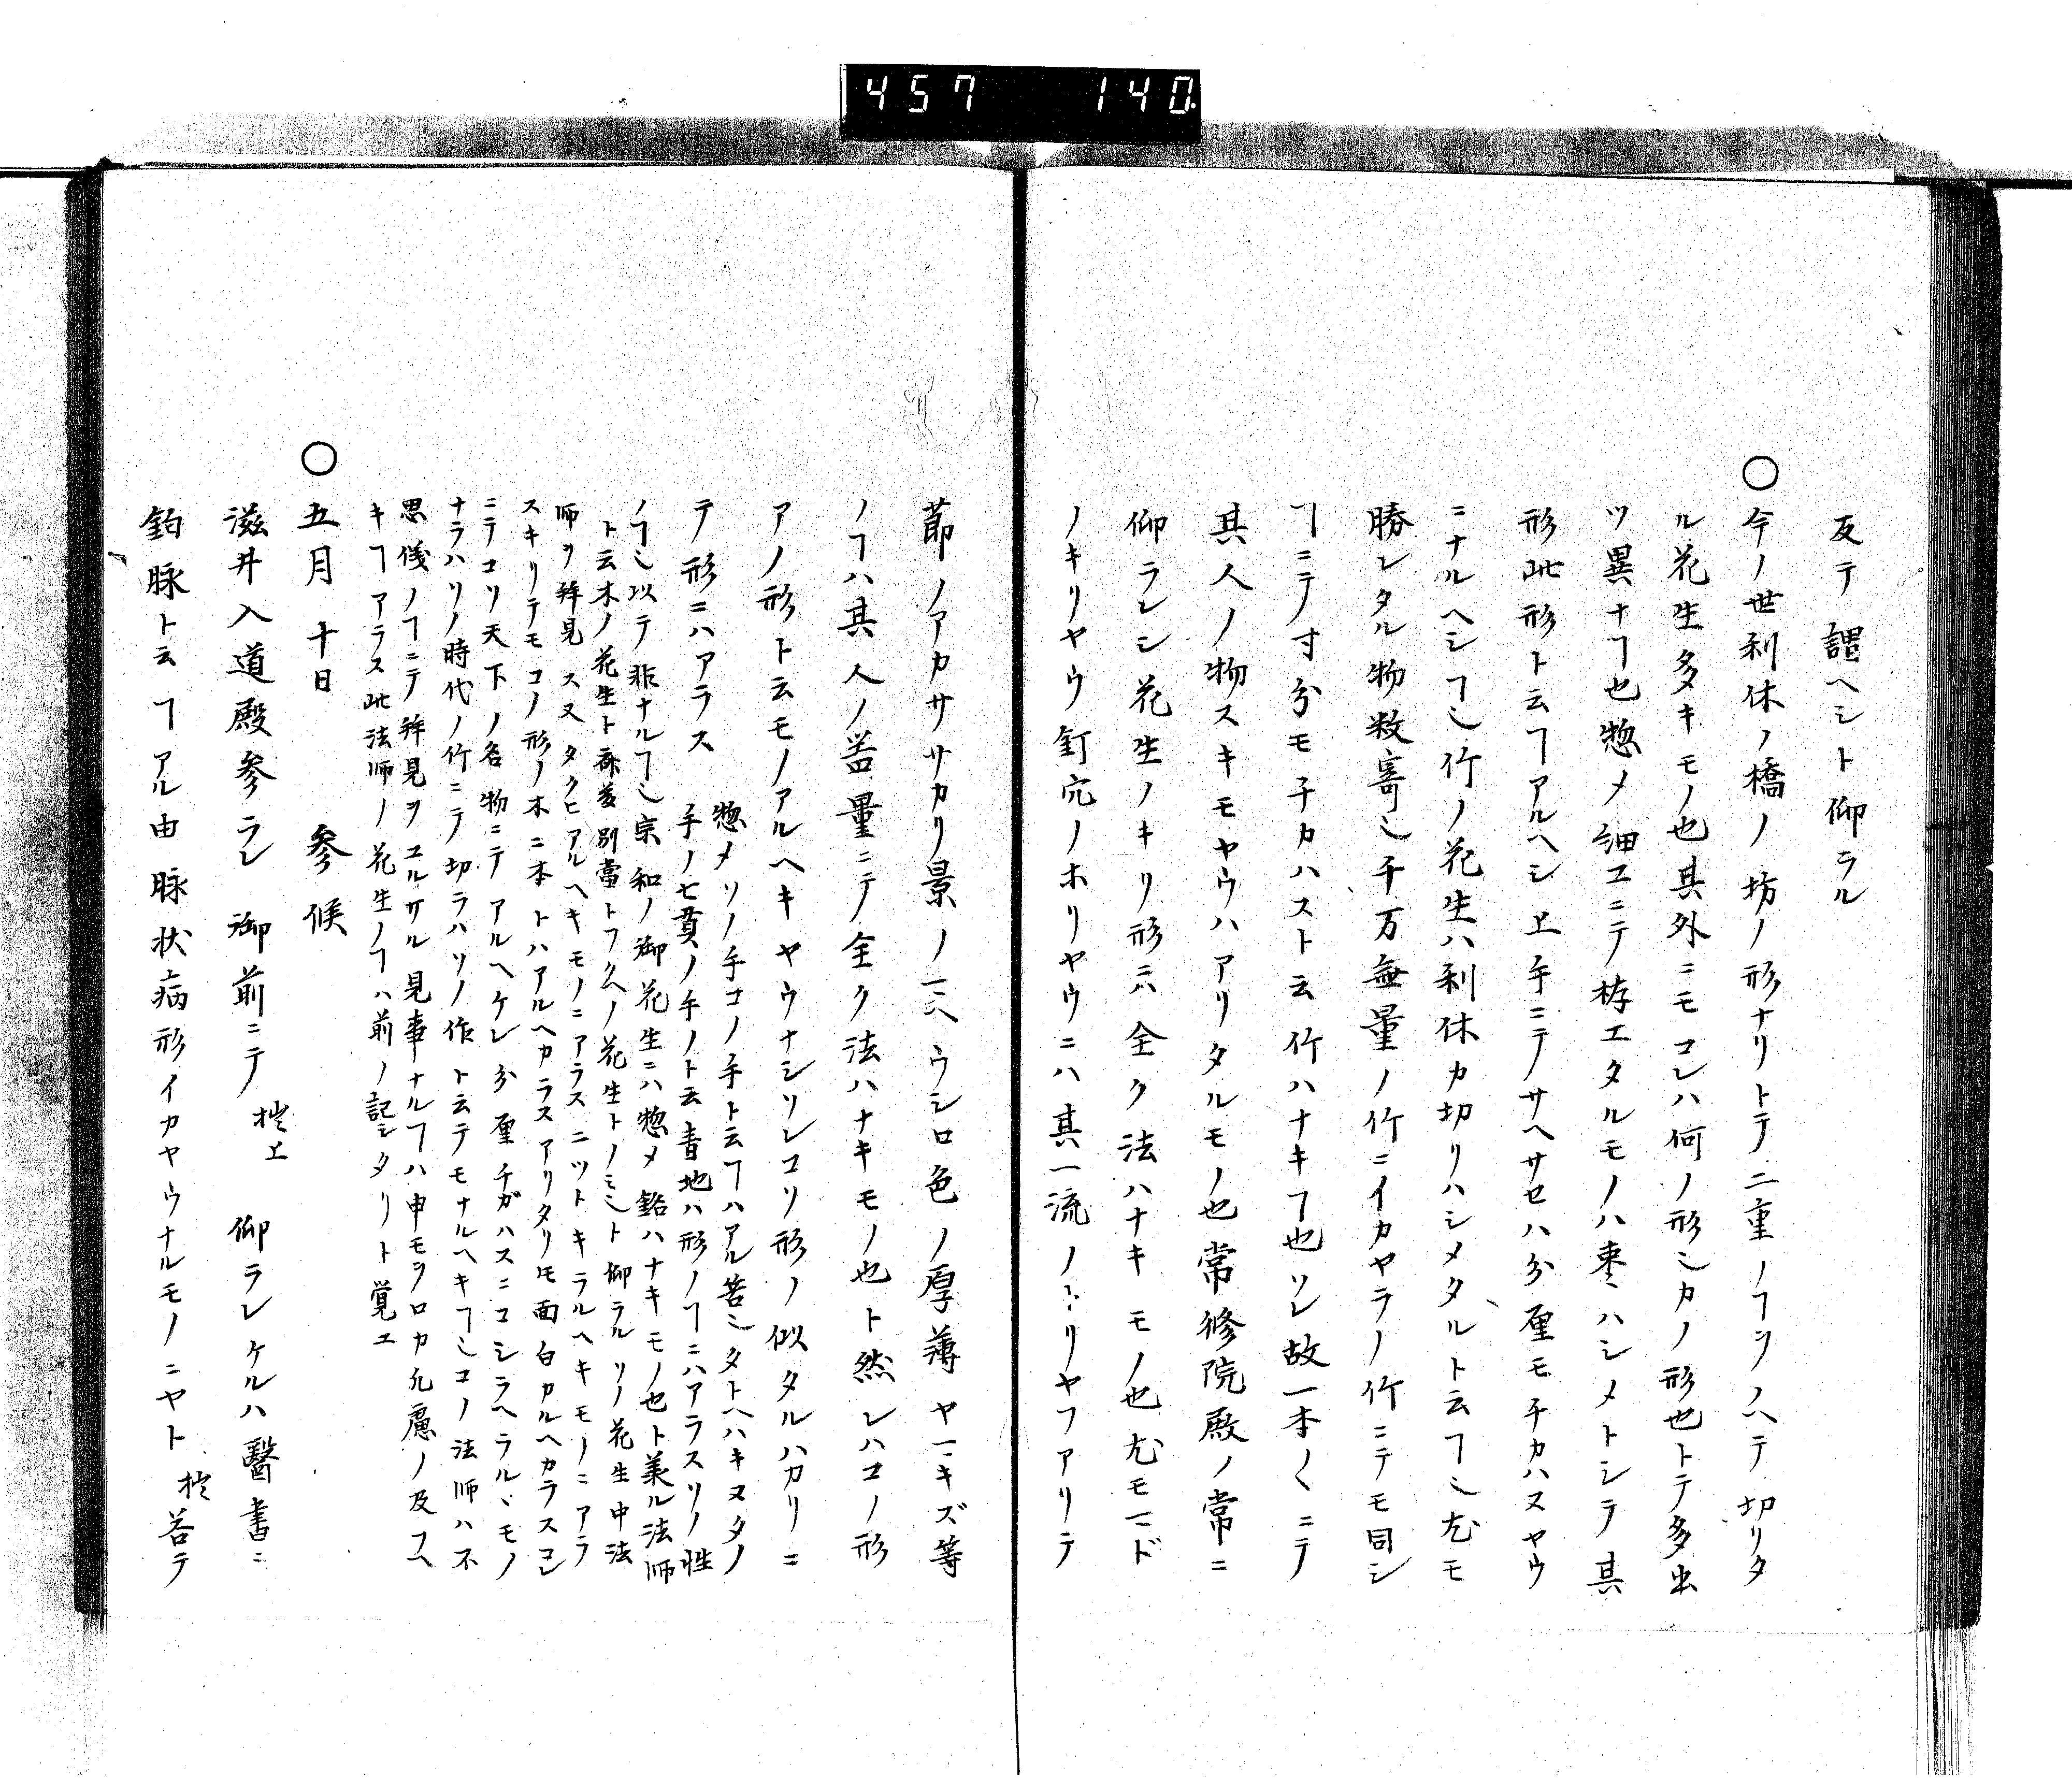 457 140
反テ謂ヘシト仰ラル
〇今ノ世利休ノ橋ノ坊ノ形ナリトテ二重ノヿヲノヘテ切リタ
ル花生多キモノ也其外ニモコレハ何ノ形シカノ形也トテ多出
ツ異ナヿ也惣〆細工ニテ栫エタルモノハ棗ハシメトシテ其
形此形ト云ヿアルヘシ上手ニテサヘサセハ分厘モチカハヌヤウ
ニナルヘシヿ也竹ノ花生ハ利休カ切リハシメタルト云ヿ也尤モ
勝レタル物数寄也千万無量ノ竹ニイカヤラノ竹ニテモ同シ
ヿニテ寸分モチカハスト云竹ハナキヿ也ソレ故一本〱ニテ
其人ノ物スキモヤウハアリタルモノ也常修院殿ノ常ニ
仰ラレシ花生ノキリ形ニハ全ク法ハナキモノ也尤モマド
ノキリヤウ釘穴ノホリヤウニハ其一流ノミリヤフアリテ
節ノアカササカリ景ノ一ハウシロ色ノ厚薄ヤマキズ等
ノヿハ其人ノ器量ニテ全ク法ハナキモノ也ト然レハコノ形
アノ形ト云モノアルヘキヤウナシソレコソ形ノ似タルハカリニ
テ形ニハアラス
惣〆ソノ手コノ手ト云ヿハアル筈也タトヘハキヌタノ
手ノ七貫ノ手ノト云青地ハ形ノヿニハアラスソノ性
ノヿ也以テ非ナルヿ也宗和ノ御花生ニハ惣〆銘ハナキモノ也ト義ル法師
ト云木ノ花生ト斎藤別當トフクヘノ花生トノミ也ト仰ラルソノ花生申法
師ヲ拝見ス又タクヒアルヘキモノニアラス二ツトキラルヘキモノニアラ
スキリテモコノ形ノ木ニ本トハアルヘカラスアリタリ𪜈面白カルヘカラスコレ
ニテコソ天下ノ名物ニテアルヘケレ分厘チガハスニコシラヘラルヽモノ
ナラハソノ時代ノ竹ニテ切ラハソノ作ト云テモナルヘキヿ也コノ法師ハ不
思儀ノヿニテ拝見ヲユルサル見事ナルヿハ申モヲロカ凡慮ノ及フヘ
キヿアラス此法師ノ花生ノヿハ前ノ記シタリト覚エ
〇五月十日 参候
滋井入道殿参ラレ 御前ニテ 拙エ 仰ラレケルハ醫書ニ
釣脉ト云ヿアル由脉状病形イカヤウナルモノニヤト拙答テ